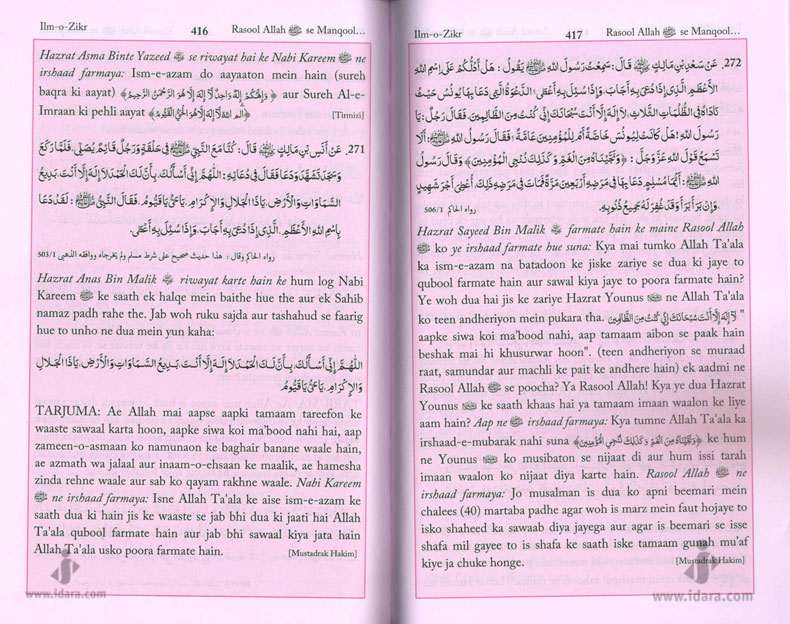 Ilm-o-Zikr 416 Rasool Allah ﷺ se Manqool...
Hazrat Asma Binte Yazeed رضي الله عنها se riwayat hai ke Nabi Kareem ﷺ ne
irshaad farmaya: Ism-e-azam do aayaaton mein hain (sureh
baqra ki aayat) ﴿وَإِلٰهُكُمْ إِلٰهٌ وَاحِدٌ لَا إِلٰهَ إِلَّا هُوَ الرَّحْمٰنُ الرَّحِيْمُ﴾ aur Sureh Al-e-
Imraan ki pehli aayat ﴿الٓمّٓ اللهُ لَا إِلٰهَ إِلَّا هُوَ الْحَيُّ الْقَيُّوْمُ﴾ [Tirmizi]
271. عَنْ أَنَسِ بْنِ مَالِكٍ قَالَ: كُنَّا مَعَ النَّبِيِّ ﷺ فِي حَلْقَةٍ وَرَجُلٌ قَائِمٌ يُصَلِّي، فَلَمَّا رَكَعَ
وَسَجَدَ تَشَهَّدَ وَدَعَا فَقَالَ فِي دُعَائِهِ: اَللّٰهُمَّ إِنِّي أَسْأَلُكَ بِأَنَّ لَكَ الْحَمْدَ لَا إِلٰهَ إِلَّا أَنْتَ، بَدِيْعُ
السَّمَاوَاتِ وَالْأَرْضِ، يَا ذَا الْجَلَالِ وَالْإِكْرَامِ، يَا حَيُّ يَا قَيُّوْمُ، فَقَالَ النَّبِيُّ ﷺ: لَقَدْ دَعَا
بِاسْمِ اللهِ الْأَعْظَمِ، الَّذِي إِذَا دُعِيَ بِهِ أَجَابَ، وَإِذَا سُئِلَ بِهِ أَعْطَى.
رواه الحاكم وقال: هذا حديث صحيح على شرط مسلم ولم يخرجاه ووافقه الذهبي 503/1
Hazrat Anas Bin Malik رضي الله عنه riwayat karte hain ke hum log Nabi
Kareem ﷺ ke saath ek halqe mein baithe hue the aur ek Sahib
namaz padh rahe the. Jab woh ruku sajda aur tashahud se faarig
hue to unho ne dua mein yun kaha:
اَللّٰهُمَّ إِنِّي أَسْأَلُكَ بِأَنَّ لَكَ الْحَمْدَ لَا إِلٰهَ إِلَّا أَنْتَ، بَدِيْعُ السَّمَاوَاتِ وَالْأَرْضِ، يَا ذَا الْجَلَالِ
وَالْإِكْرَامِ، يَا حَيُّ يَا قَيُّوْمُ
TARJUMA: Ae Allah mai aapse aapki tamaam tareefon ke
waaste sawaal karta hoon, aapke siwa koi ma'bood nahi hai, aap
zameen-o-asmaan ko namunaon ke baghair banane waale hain,
ae azmath wa jalaal aur inaam-o-ehsaan ke maalik, ae hamesha
zinda rehne waale aur sab ko qayam rakhne waale. Nabi Kareem
ﷺ ne irshaad farmaya: Isne Allah Ta'ala ke aise ism-e-azam ke
saath dua ki hain jis ke waaste se jab bhi dua ki jaati hai Allah
Ta'ala qubool farmate hain aur jab bhi sawaal kiya jata hain
Allah Ta'ala usko poora farmate hain. [Mustadrak Hakim]
www.idara.com
Ilm-o-Zikr 417 Rasool Allah ﷺ se Manqool...
272. عَنْ سَعْدِ بْنِ مَالِكٍ قَالَ: سَمِعْتُ رَسُوْلَ اللهِ ﷺ يَقُوْلُ: هَلْ أَدُلُّكُمْ عَلَى اسْمِ اللهِ
الْأَعْظَمِ الَّذِي إِذَا دُعِيَ بِهِ أَجَابَ، وَإِذَا سُئِلَ بِهِ أَعْطَى، الدَّعْوَةُ الَّتِي دَعَا بِهَا يُوْنُسُ حَيْثُ
نَادَاهُ فِي الظُّلُمَاتِ الثَّلَاثِ، لَا إِلٰهَ إِلَّا أَنْتَ سُبْحَانَكَ إِنِّي كُنْتُ مِنَ الظَّالِمِيْنَ، فَقَالَ رَجُلٌ: يَا
رَسُوْلَ اللهِ! هَلْ كَانَتْ لِيُوْنُسَ خَاصَّةً أَمْ لِلْمُؤْمِنِيْنَ عَامَّةً؟ فَقَالَ رَسُوْلُ اللهِ ﷺ: أَلَا
تَسْمَعُ قَوْلَ اللهِ عَزَّ وَجَلَّ: ﴿وَنَجَّيْنَاهُ مِنَ الْغَمِّ وَكَذٰلِكَ نُنْجِي الْمُؤْمِنِيْنَ﴾ وَقَالَ رَسُوْلُ
اللهِ ﷺ: أَيُّمَا مُسْلِمٍ دَعَا بِهَا فِي مَرَضِهِ أَرْبَعِيْنَ مَرَّةً فَمَاتَ فِي مَرَضِهِ ذٰلِكَ، أُعْطِيَ أَجْرَ شَهِيْدٍ
وَإِنْ بَرَأَ بَرَأَ وَقَدْ غُفِرَ لَهُ جَمِيْعُ ذُنُوْبِهِ. رواه الحاكم 506/1
Hazrat Sayeed Bin Malik رضي الله عنه farmate hain ke maine Rasool Allah
ﷺ ko ye irshaad farmate hue suna: Kya mai tumko Allah Ta'ala
ka ism-e-azam na batadoon ke jiske zariye se dua ki jaye to
qubool farmate hain aur sawal kiya jaye to poora farmate hain?
Ye woh dua hai jis ke zariye Hazrat Younus عليه السلام ne Allah Ta'ala
ko teen andheriyon mein pukara tha. "لَا إِلٰهَ إِلَّا أَنْتَ سُبْحَانَكَ إِنِّي كُنْتُ مِنَ الظَّالِمِيْنَ
aapke siwa koi ma'bood nahi, aap tamaam aibon se paak hain
beshak mai hi khusurwar hoon". (teen andheriyon se muraad
raat, samundar aur machli ke pait ke andhere hain) ek aadmi ne
Rasool Allah ﷺ se poocha? Ya Rasool Allah! Kya ye dua Hazrat
Younus عليه السلام ke saath khaas hai ya tamaam imaan waalon ke liye
aam hain? Aap ne ﷺ irshaad farmaya: Kya tumne Allah Ta'ala ka
irshaad-e-mubarak nahi suna ﴿وَنَجَّيْنَاهُ مِنَ الْغَمِّ وَكَذٰلِكَ نُنْجِي الْمُؤْمِنِيْنَ﴾ ke hum
ne Younus عليه السلام ko musibaton se nijaati di aur hum issi tarah
imaan waalon ko nijaat diya karte hain. Rasool Allah ﷺ ne
irshaad farmaya: Jo musalman is dua ko apni beemari mein
chalees (40) martaba padhe agar woh is marz mein faut hojaye to
isko shaheed ka sawaab diya jayega aur agar is beemari se isse
shafa mil gayee to is shafa ke saath iske tamaam gunah mu'af
kiye ja chuke honge. [Mustadrak Hakim]
www.idara.com